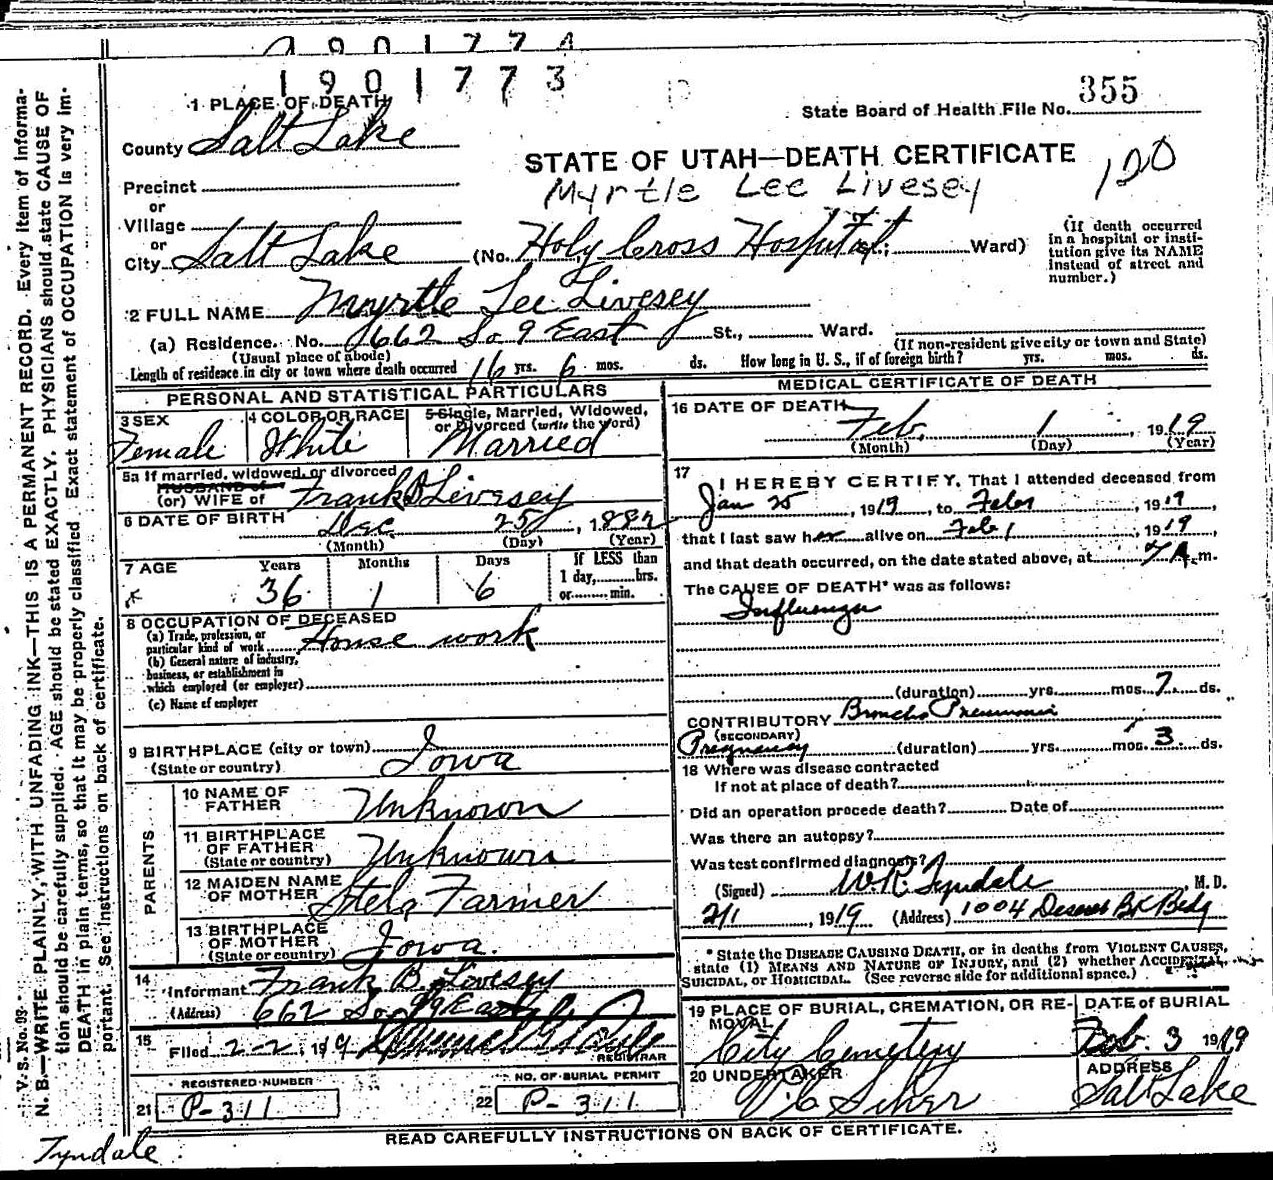 1901774
1901773
1 PLACE OF DEATH
State Board of Health File No. 355
County Salt Lake
STATE OF UTAH—DEATH CERTIFICATE 120
Precinct
or
Myrtle Lee Livesey
Village
or
City Salt Lake (No. Holy Cross Hospital St.; Ward)
(If death occurred
in a hospital or insti-
tution give its NAME
instead of street and
number.)
2 FULL NAME Myrtle Lee Livesey
(a) Residence. No. 662 So 9 East St., Ward.
(Usual place of abode) (If non-resident give city or town and State)
Length of residence in city or town where death occurred 16 yrs. 6 mos. ds. How long in U. S., if of foreign birth? yrs. mos. ds.
PERSONAL AND STATISTICAL PARTICULARS
3 SEX
Female
4 COLOR OR RACE
White
5 Single, Married, Widowed,
or Divorced (write the word)
Married
5a If married, widowed, or divorced
HUSBAND of
(or) WIFE of Frank B Livesey
6 DATE OF BIRTH Dec 25, 1882
(Month) (Day) (Year)
7 AGE
Years Months Days
36 1 6
If LESS than
1 day, hrs.
or min.
8 OCCUPATION OF DECEASED
(a) Trade, profession, or
particular kind of work House work
(b) General nature of industry,
business, or establishment in
which employed (or employer)
(c) Name of employer
9 BIRTHPLACE (city or town)
(State or country) Iowa
PARENTS
10 NAME OF
FATHER Unknown
11 BIRTHPLACE
OF FATHER
(State or country) Unknown
12 MAIDEN NAME
OF MOTHER Stela Farmer
13 BIRTHPLACE
OF MOTHER
(State or country) Iowa.
14
Informant Frank B. Livesey
(Address) 662 So 9 East
15
Filed 2-2, 1919
REGISTRAR
REGISTERED NUMBER
21 P-311
NO. OF BURIAL PERMIT
22 P-311
MEDICAL CERTIFICATE OF DEATH
16 DATE OF DEATH
Feb. 1, 1919
(Month) (Day) (Year)
17
I HEREBY CERTIFY, That I attended deceased from
Jan 25, 1919, to Feb 1, 1919,
that I last saw her alive on Feb 1, 1919,
and that death occurred, on the date stated above, at 7 A. m.
The CAUSE OF DEATH* was as follows:
Influenza
(duration) yrs. mos. 7 ds.
CONTRIBUTORY Broncho Pneumonia
(SECONDARY)
Pregnancy (duration) yrs. mos. 3 ds.
18 Where was disease contracted
If not at place of death?
Did an operation precede death? Date of
Was there an autopsy?
Was test confirmed diagnosis?
(Signed) W.R. Tyndale, M. D.
2/1, 1919 (Address) 1004 Deseret Bk Bldg
* State the DISEASE CAUSING DEATH, or in deaths from VIOLENT CAUSES,
state (1) MEANS AND NATURE OF INJURY, and (2) whether ACCIDENTAL,
SUICIDAL, or HOMICIDAL. (See reverse side for additional space.)
19 PLACE OF BURIAL, CREMATION, OR RE-
MOVAL
City Cemetery
DATE OF BURIAL
Feb. 3 1919
20 UNDERTAKER
ADDRESS
Salt Lake
READ CAREFULLY INSTRUCTIONS ON BACK OF CERTIFICATE.
V. S. No. 93
N. B.—WRITE PLAINLY, WITH UNFADING INK—THIS IS A PERMANENT RECORD. Every item of informa-
tion should be carefully supplied. AGE should be stated EXACTLY. PHYSICIANS should state CAUSE OF
DEATH in plain terms, so that it may be properly classified. Exact statement of OCCUPATION is very im-
portant. See instructions on back of certificate.
Tyndale